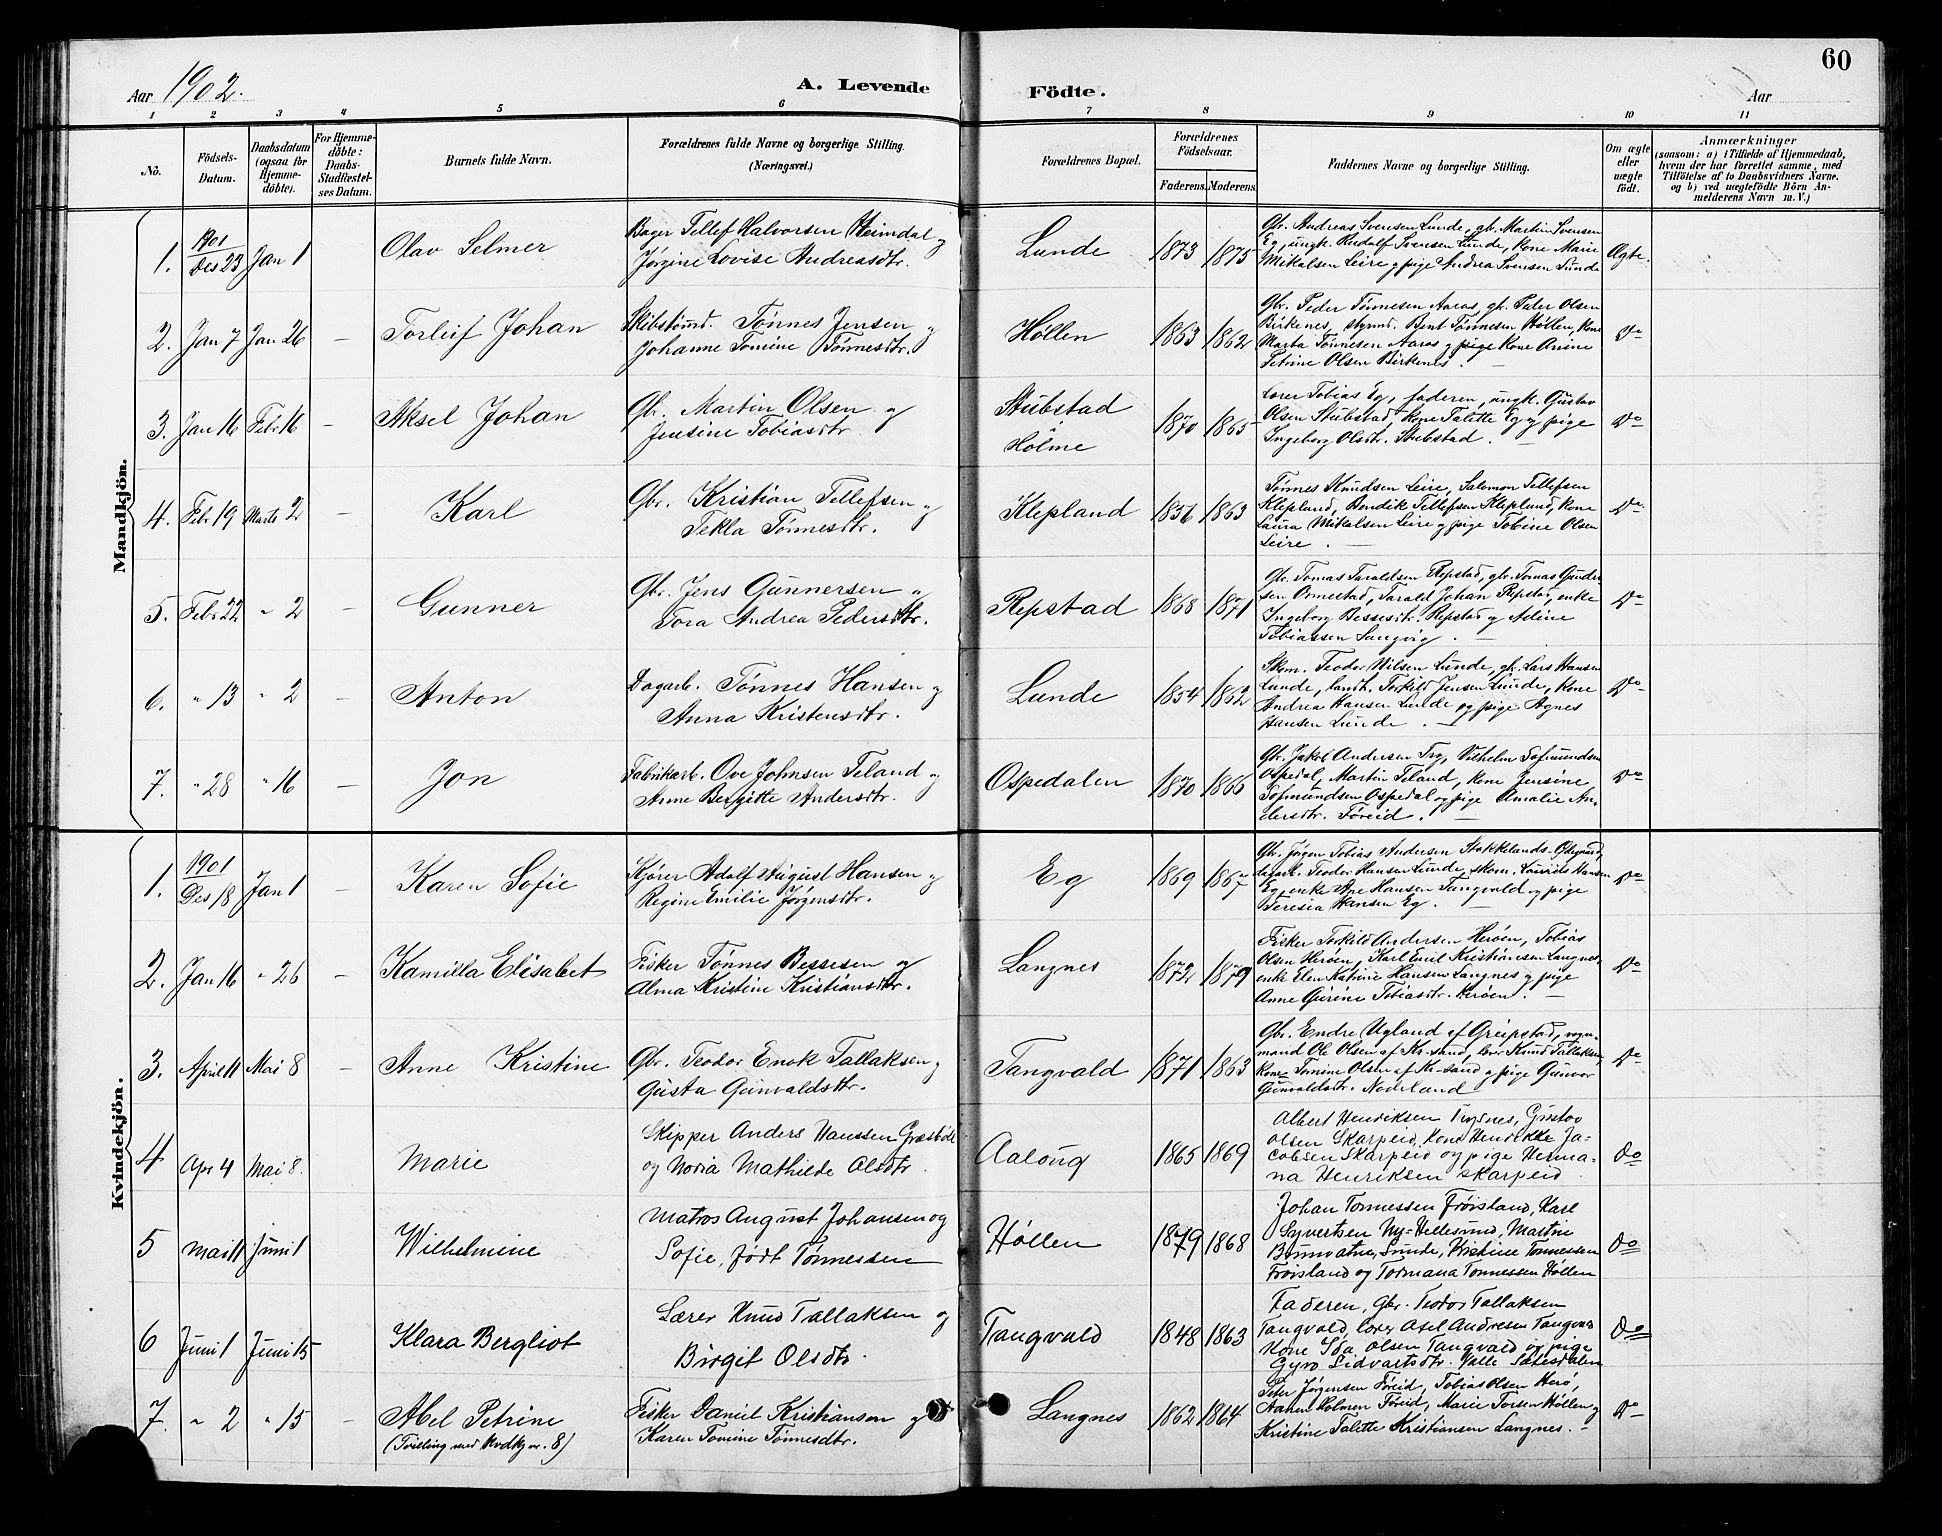 60
Aar 1902.
A. Levende Födte.
Aar
1 2 3 4 5 6 7 8 9 10 11
No.
Födsels-Datum.
Daabsdatum (ogsaa for Hjemme-döbte).
For Hjemme-döbte: Daabs-Stadfæstelses Datum.
Barnets fulde Navn.
Forældrenes fulde Navne og borgerlige Stilling.
(Næringsvei.)
Forældrenes Bopæl.
Forældrenes Födselsaar.
Faderens. Moderens.
Faddernes Navne og borgerlige Stilling.
Om ægte eller uægte födt.
Anmærkninger
(saasom: a) i Tilfælde af Hjemmedaab,
hvem der har forrettet samme, med
Tilföielse af to Daabsvidners Navne.
og b) ved uægtefödte Börn An-
melderens Navn m. V.)
Mandkjön.
1. 1901 Des 23 Jan 1 Olav Selmer
Bager Tellef Halvorsen Heimdal og
Jørgine Lovise Andreasdtr.
Lunde 1873 1875
Gbr. Andreas Svensen Lunde, gb. Martin Svensen
Eg, ungk. Rudolf Svensen Lunde, kone Marie
Mikalsen Leire og pige Andrea Svensen Lunde
Ægte.
2. Jan 7 Jan 26 – Torleif Johan
Skibstømd. Tønnes Jensen og
Johanne Tomine Tønnesdtr.
Høllen 1863 1862
Gbr. Peder Tønnesen Aaros, gb. Peter Olsen
Birkenes, styrmd. Bent Tønnesen Høllen, kone
Marta Tønnesen Aaros og pige kone Anine
Petrine Olsen Birkenes.
Do
3. Jan 16 Febr 16 – Aksel Johan
Gbr. Martin Olsen og
Jensine Tobiasdtr.
Stubstad
Holme
1870 1865
Lærer Tobias Eg, faderen, ungk. Gustav
Olsen Stubstad, kone Talette Eg og pige
Ingeborg Olsdtr. Stubstad.
Do
4. Febr 19 Marts 2 – Karl
Gbr. Kristian Tellefsen og
Tekla Tønnesdtr.
Klepland 1856 1863
Tønnes Knudsen Leire, Salomon Tellefsen
Klepland, Bendik Tellefsen Klepland, kone
Laura Mikalsen Leire og pige Tobine Olsen
Leire.
Do
5. Febr 22 " 2 – Gunner
Gbr. Jens Gunnersen og
Tora Andrea Pedersdtr.
Repstad 1868 1871
Gbr. Tomas Taraldsen Repstad, gbr. Tomas Gunder-
sen Ormestad, Tarald Johan Repstad, enke
Ingeborg Bessesdtr. Repstad og Adine
Tobiassen Langvig.
Do
6. " 13 " 2 – Anton
Dagarb. Tønnes Hansen og
Anna Kristensdtr.
Lunde 1854 1862
Skom. Teodor Nilsen Lunde, gb. Lars Hansen
Lunde, landh. Torkild Jensen Lunde, kone
Andrea Hansen Lunde og pige Agnes
Hansen Lunde.
Do
7. " 28 " 16 – Jon
Fabrikarb. Ove Johnsen Teland og
Anne Bergitte Andersdtr.
Ospedalen 1870 1866
Gbr. Jakob Andersen Try, Vilhelm Tofmundsen
Ospedal, Martin Teland, kone Jensine
Tofmundsen Ospedal og pige Amalie An-
dersdtr. Føreid.
Do
Kvindekjön.
1. 1901 Des 18 Jan 1 – Karen Sofie
Kjører Adolf August Hansen og
Regine Emilie Jørgensdtr.
Eg 1869 1867
Gbr. Jørgen Tobias Andersen Stokkelands-Ødegaard,
Teodor Hansen Lunde, skom. Laurids Hansen
Eg, enke Ane Hansen Tangvald og pige
Teresia Hansen Eg.
Do
2. Jan 16 " 26 – Kamilla Elisabet
Fisker Tønnes Bessesen og
Alma Kristine Kristiansdtr.
Langnes 1872 1879
Fisker Torkild Andersen Herøen, Tobias
Olsen Herøen, Karl Emil Kristiansen Langnes,
enke Elen Katrine Hansen Langnes og pige
Anne Gurine Tobiasdtr. Herøen.
Do
3. April 11 Mai 8 – Anne Kristine
Gbr. Teodor Enok Tallaksen og
Gusta Gunvaldsdtr.
Tangvald 1871 1863
Gbr. Endre Ugland af Greipstad, vogn-
mand Ole Olsen af Kr-sand, lærer Knud Tallaksen,
Kone Tomine Olsen af Kr-sand og pige Gunvor
Gunvaldsdtr. Nodeland
Do
4 Apr 4 Mai 8. Marie
Skipper Anders Hanssen Græsbøll
og Noria Mathilde Olsdtr.
Aaloug 1865 1869
Albert Henriksen Trysnes, Gustav
Olsen Skarpeid, kone Henrikke Ja-
cobsen Skarpeid og pige Herma-
na Henriksen Skarpeid.
do
5 Mai 11 Juni 1 Wilhelmine
Matros August Johansen og
Sofie, født Tønnessen
Høllen 1879 1868
Johan Tønnessen Frøisland, Karl
Syvertsen Ny-Hellesund, Martine
Brunvatne, Lunde, Kristine Tønnessen
Frøisland og Tormana Tønnessen Høllen
do
6 Juni 1 Juni 15 Klara Bergliot
Lærer Knud Tallaksen og
Birgit Olsdtr.
Tangvald 1848 1863
Faderen, Gbr. Teodor Tallaksen
Tangvald, lærer Axel Andresen Tangvald
Kone Ida Olsen Tangvald og pige
Gyro Sidvartsdtr. Valle Sætesdalen
do
7. " 2 " 15 – Abel Petrine
(Tvilling med Kvdkj nr. 8)
Fisker Daniel Kristianson og
Karen Tomine Tønnesdtr.
Langnes 1862 1864
Peter Jørgensen Føreid, Tobias Olsen Herø,
Aanen Holmen Føreid, Marie Torsen Høllen og
Kristine Talette Kristiansen Langnes.
Do